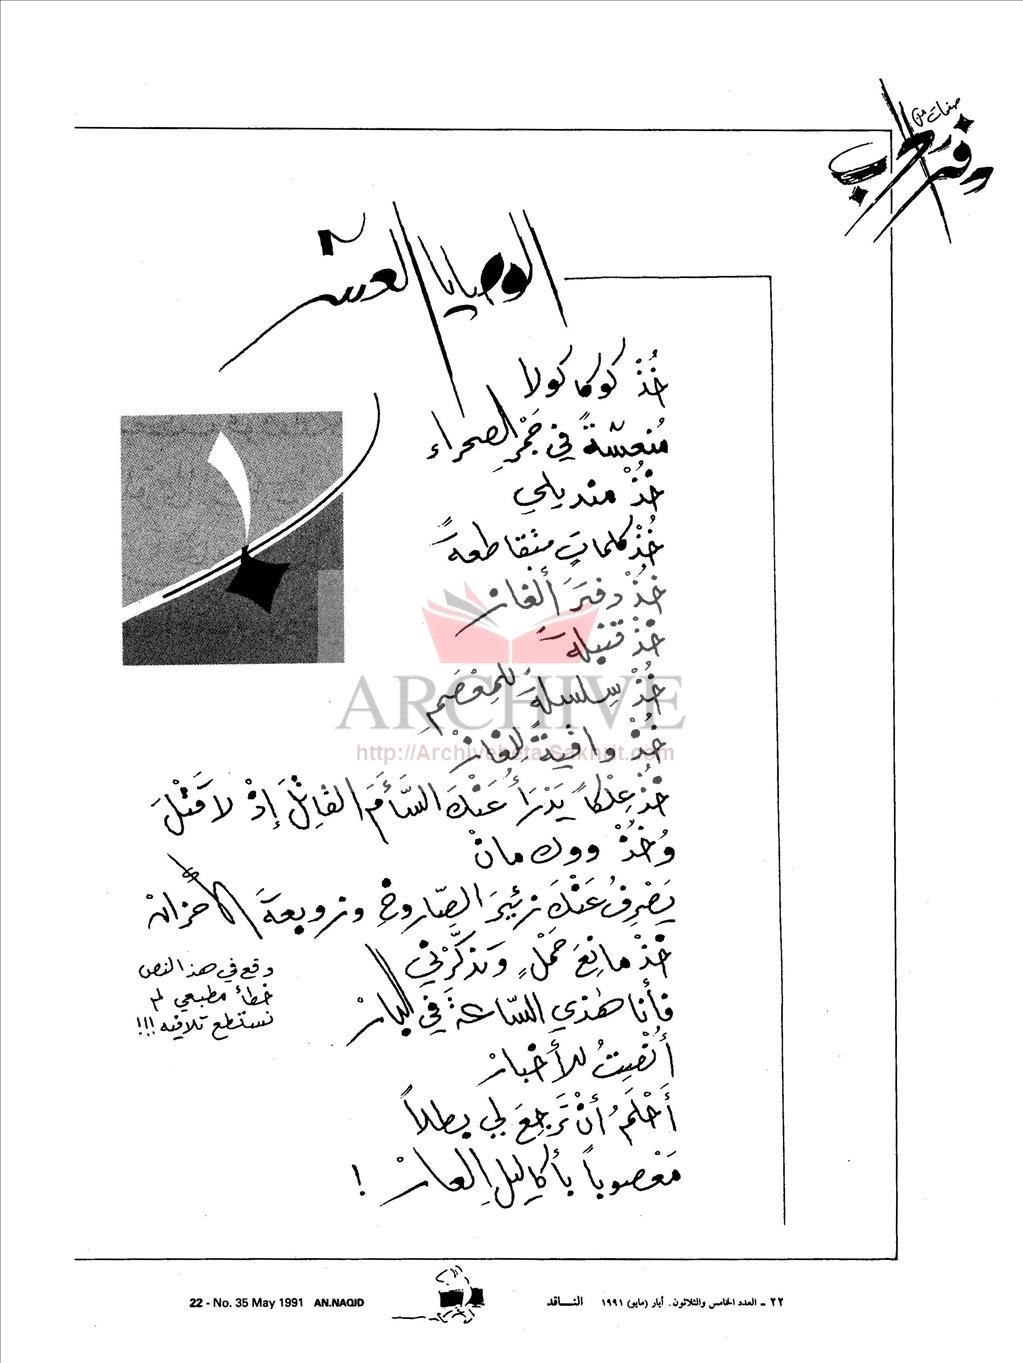 صفحات من
دفتر حرب
الوصايا العشر
١
خُذْ كوكا كولا
مُنعِشةً في جَمْرِ الصحراء
خُذْ منديلي
خُذْ كلماتٍ متقاطعةً
خُذْ دفترَ ألغاز
خُذْ قنبلةً
خُذْ سِلسلةً للمِعْصَمِ
خُذْ واقيةً للغازْ
خُذْ عِلْكاً يَدْرَأُ عَنْكَ السَّأَمَ القاتِلَ إذْ لا قَتْلَ
وَخُذْ ووك مانْ
يَصْرِفُ عَنْكَ زئيرَ الصّاروخِ وزوبعةَ الأحزانْ
خُذْ مانِعَ حَمْلٍ وَتذكَّرْني
فأنا هٰذي السّاعةَ في البارْ
أُنْصِتُ للأخبارْ
أَحْلَمُ أنْ تَرجِعَ لي بطلاً
مَعْصوباً بأكاليلِ العارْ !
وقع في هذا النص
خطأ مطبعي لم
نستطع تلافيه !!!
ARCHIVE
http://Archivebeta.Sakhrit.com
22 - No. 35 May 1991 AN.NAQID
٢٢ ـ العدد الخامس والثلاثون. أيار (مايو) ١٩٩١ النـاقد